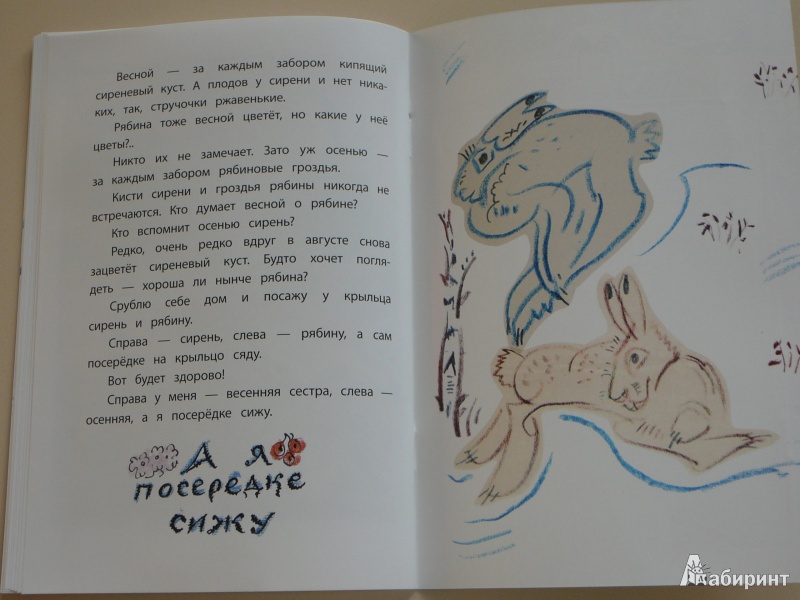 Весной — за каждым забором кипящий
сиреневый куст. А плодов у сирени и нет ника-
ких, так, стручочки ржавенькие.
Рябина тоже весной цветёт, но какие у неё
цветы?..
Никто их не замечает. Зато уж осенью —
за каждым забором рябиновые гроздья.
Кисти сирени и гроздья рябины никогда не
встречаются. Кто думает весной о рябине?
Кто вспомнит осенью сирень?
Редко, очень редко вдруг в августе снова
зацветёт сиреневый куст. Будто хочет погля-
деть — хороша ли нынче рябина?
Срублю себе дом и посажу у крыльца
сирень и рябину.
Справа — сирень, слева — рябину, а сам
посерёдке на крыльцо сяду.
Вот будет здорово!
Справа у меня — весенняя сестра, слева —
осенняя, а я посерёдке сижу.
А я
посерёдке
сижу
Лабиринт